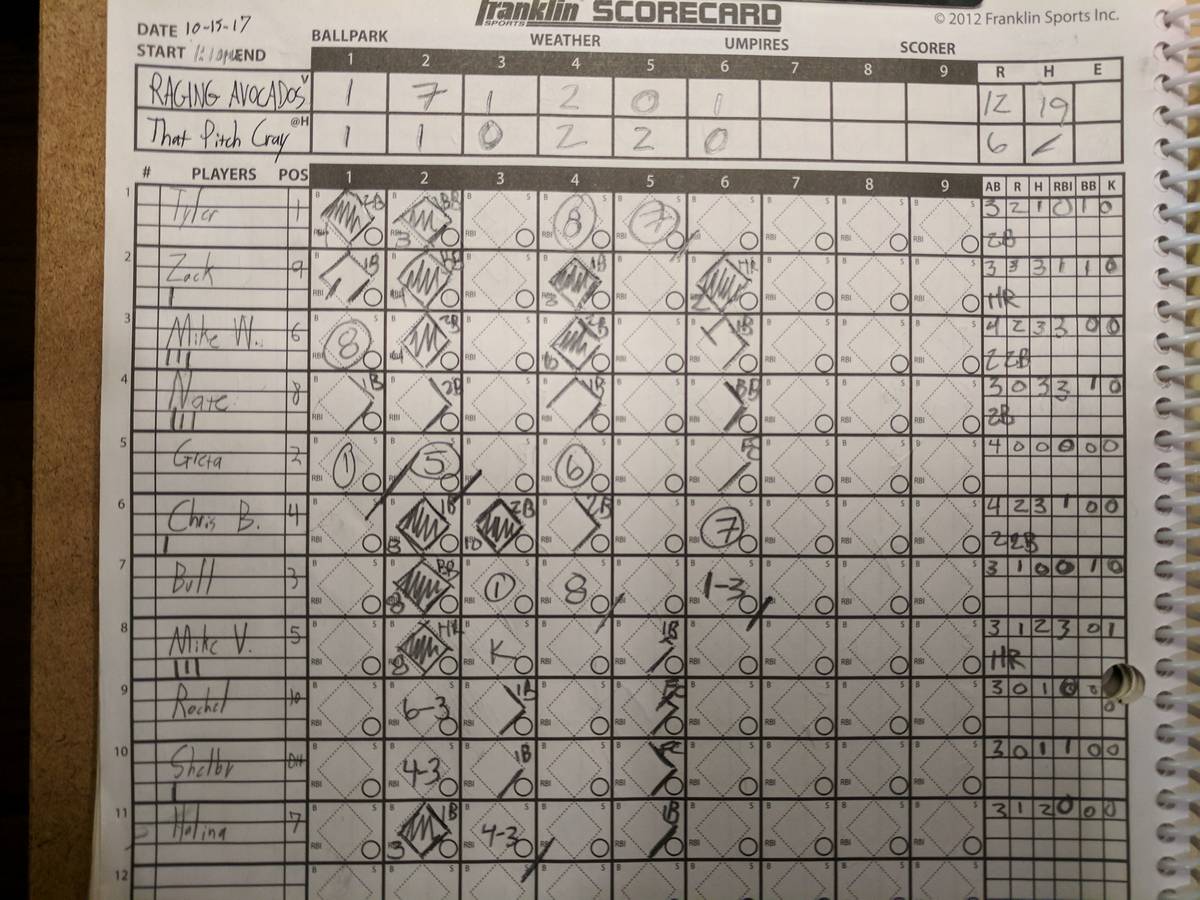 Franklin SPORTS SCORECARD
© 2012 Franklin Sports Inc.
DATE 10-15-17
START 1:10PM END
BALLPARK WEATHER UMPIRES SCORER
1 2 3 4 5 6 7 8 9 R H E
RAGING AVOCADOS V 1 7 1 2 0 1 12 19
That Pitch Cray @H 1 1 0 2 2 0 6
# PLAYERS POS 1 2 3 4 5 6 7 8 9 AB R H RBI BB K
1 Tyler 1 2B BB 8 7 3 2 1 0 1 0
2B
2 Zack 9 1B BB 1B HR 3 3 3 1 1 0
HR
3 Mike W. 6 8 2B 2B 1B 4 2 3 3 0 0
2 2B
4 Nate 8 1B 2B 1B BB 3 0 3 3 1 0
2B
5 Greta 2 1 5 6 FC 4 0 0 0 0 0
6 Chris B. 4 1B 2B 2B 7 4 2 3 1 0 0
2 2B
7 Bull 3 BB 1 8 1-3 3 1 0 0 1 0
8 Mike V. 5 HR K 1B 3 1 2 3 0 1
HR
9 Rachel 10 6-3 1B FC 3 0 1 0 0 0
10 Shelby DH 4-3 1B 3 0 1 1 0 0
11 Halina 7 1B 4-3 1B 3 1 2 0 0 0
12